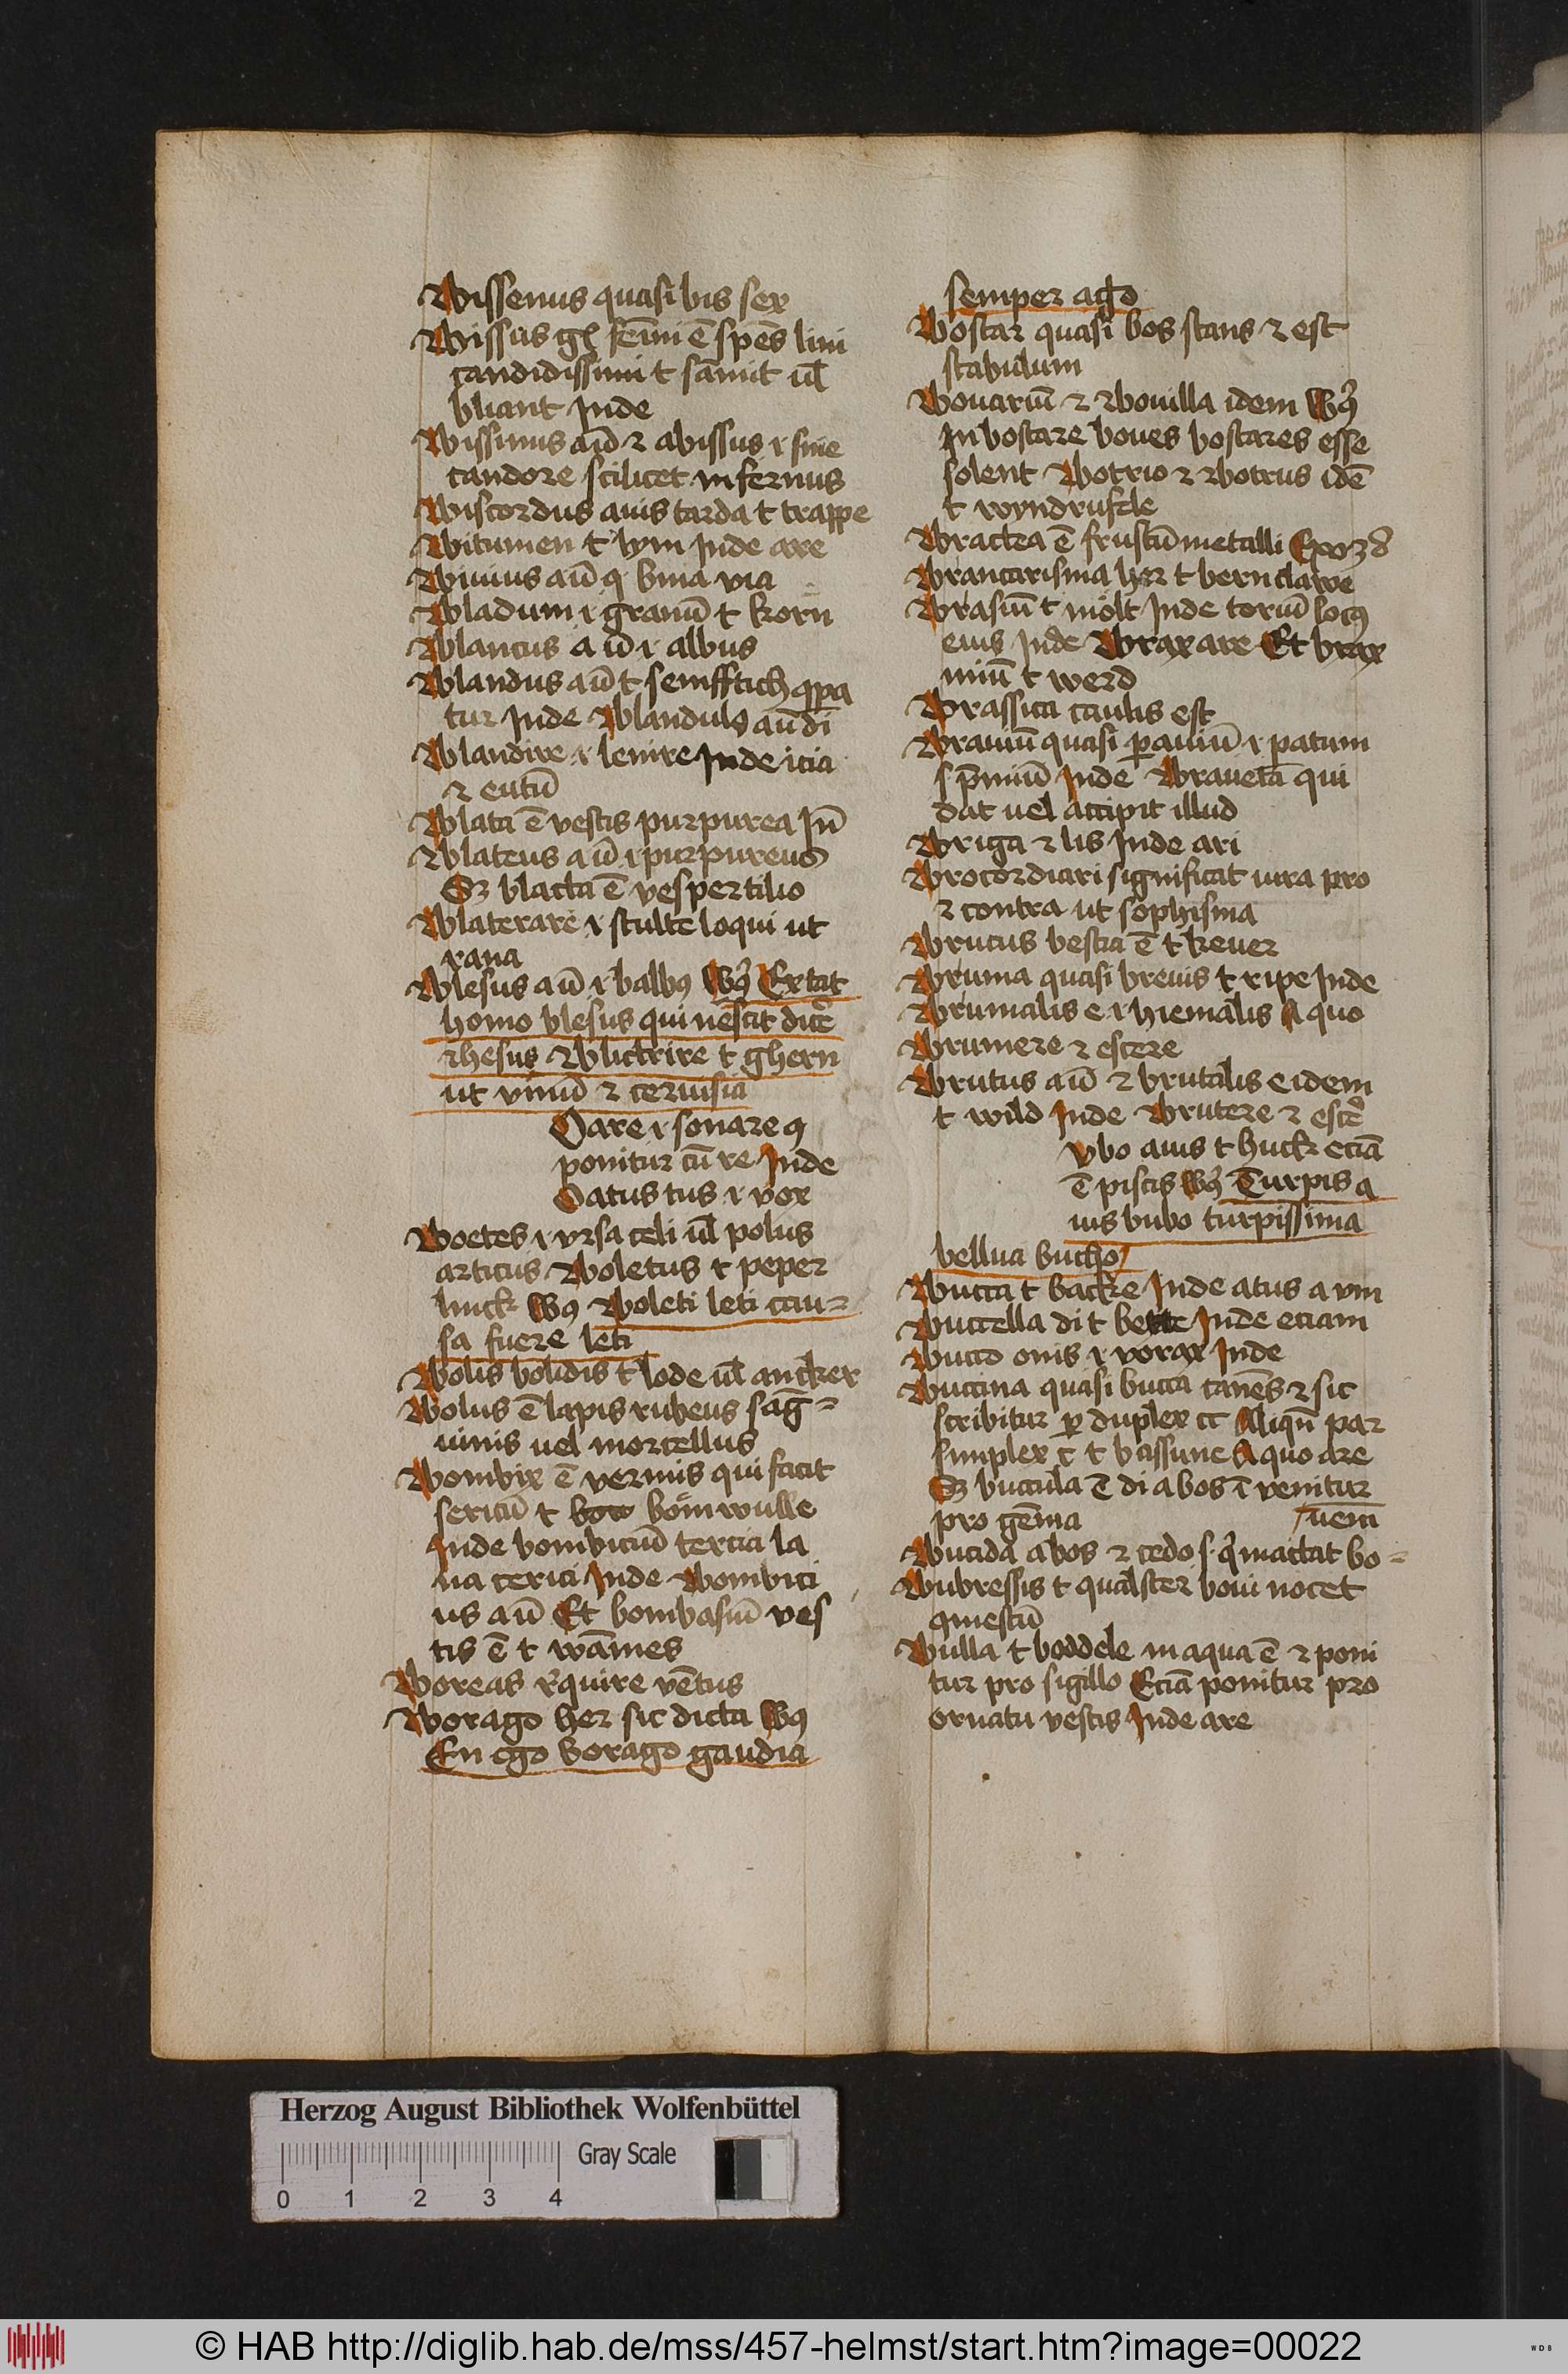 Bissenus quasi bis sex
Bissus gẽ femĩ ẽ spẽs lini
candidissimi t samit ul̃
bliant Inde
Bissinus aũ ⁊ abissus i sine
candore scilicet infernus
Biscordus auis tarda t trappe
Bitumen t lym Inde are
Biuius aũ q bina via
Bladum i granũ t korn
Blancus a ũ i albus
Blandus aũ t senfftich
tur Inde Blandulꝯ aũ di
Blandire i lenire Inde icia
⁊ entũ
Blata ẽ vestis purpurea Iñ
Blateus a ũ i purpureus
Sꝫ blacta ẽ vespertilio
Blaterare i stulte loqui ut
rana
Blesus aũ i balbꝯ Extat
homo blesus qui nescit
rhesus Blictrire t ghern
ut vinũ ⁊ ceruisia
Oare i sonare
ponitur cũ re Inde
Oatus tus i vox
Boetes i vrsa celi ul̃ polus
articus Boletus t peper
linck Boleti leti cau=
sa fuere leti
Bolis bolidis t lode ul̃ ancker
Bolus ẽ lapis rubeus sãg=
uinis uel morcellus
Bombix ẽ vermis qui facit
sericũ t bomwulle
Inde bombicinũ tercia la
na Inde Bombici
us aũ Et bombasiũ ves
tis ẽ t wãmes
Boreas r̃quire vẽtus
Borago her sic dicta
En ego borago gaudia
semper ago
Bostar quasi bos stans ⁊ est
stabulum
Bouariũ ⁊ Bouilla idem
In bostare boues bostares esse
solent Botrio ⁊ Botrus idẽ
t wyndrufele
Bractea ẽ frustũ metalli
Brancarisina t bernclawe
Brasiũ t molt Inde toriũ locꝯ
eius Inde Braxare Et brax
iniũ t werd
Brassica caulis est
Brauiũ quasi ꝑauiũ i patum
s p̃miũ Inde Braueta qui
dat uel accipit illud
Briga ⁊ lis Inde ari
Brocordicari significat iura pro
⁊ contra ut sophisma
Brucus bestia ẽ t keuer
Bruma quasi breuis t ripe Inde
Brumalis e i hiemalis A quo
Brumere ⁊ escere
Brutus aũ ⁊ brutalis e idem
t wild Inde Brutere ⁊
vbo auis t huck eciã
ẽ piscis Turpis a
uis bubo turpissima
bellua bucho
Bucca t backe Inde atus a vm
Buccella di t Inde eciam
Bucco onis i vorax Inde
Buccina quasi bucca canẽs ⁊ sic
scribitur ꝑ duplex cc Aliqñ par
simplex c t bassune A quo are
Sꝫ buccula ẽ di a bos ĩ venitur
pro gẽma uem
Bucida a bos ⁊ cedo s mactat bo=
Bubressis t qualster boui nocet
Bulla t boddele in aqua ẽ ⁊ poni
tur pro sigillo Eciã ponitur pro
ornatu vestis Inde are
Herzog August Bibliothek Wolfenbüttel
Gray Scale
0 1 2 3 4
© HAB http://diglib.hab.de/mss/457-helmst/start.htm?image=00022
WDB